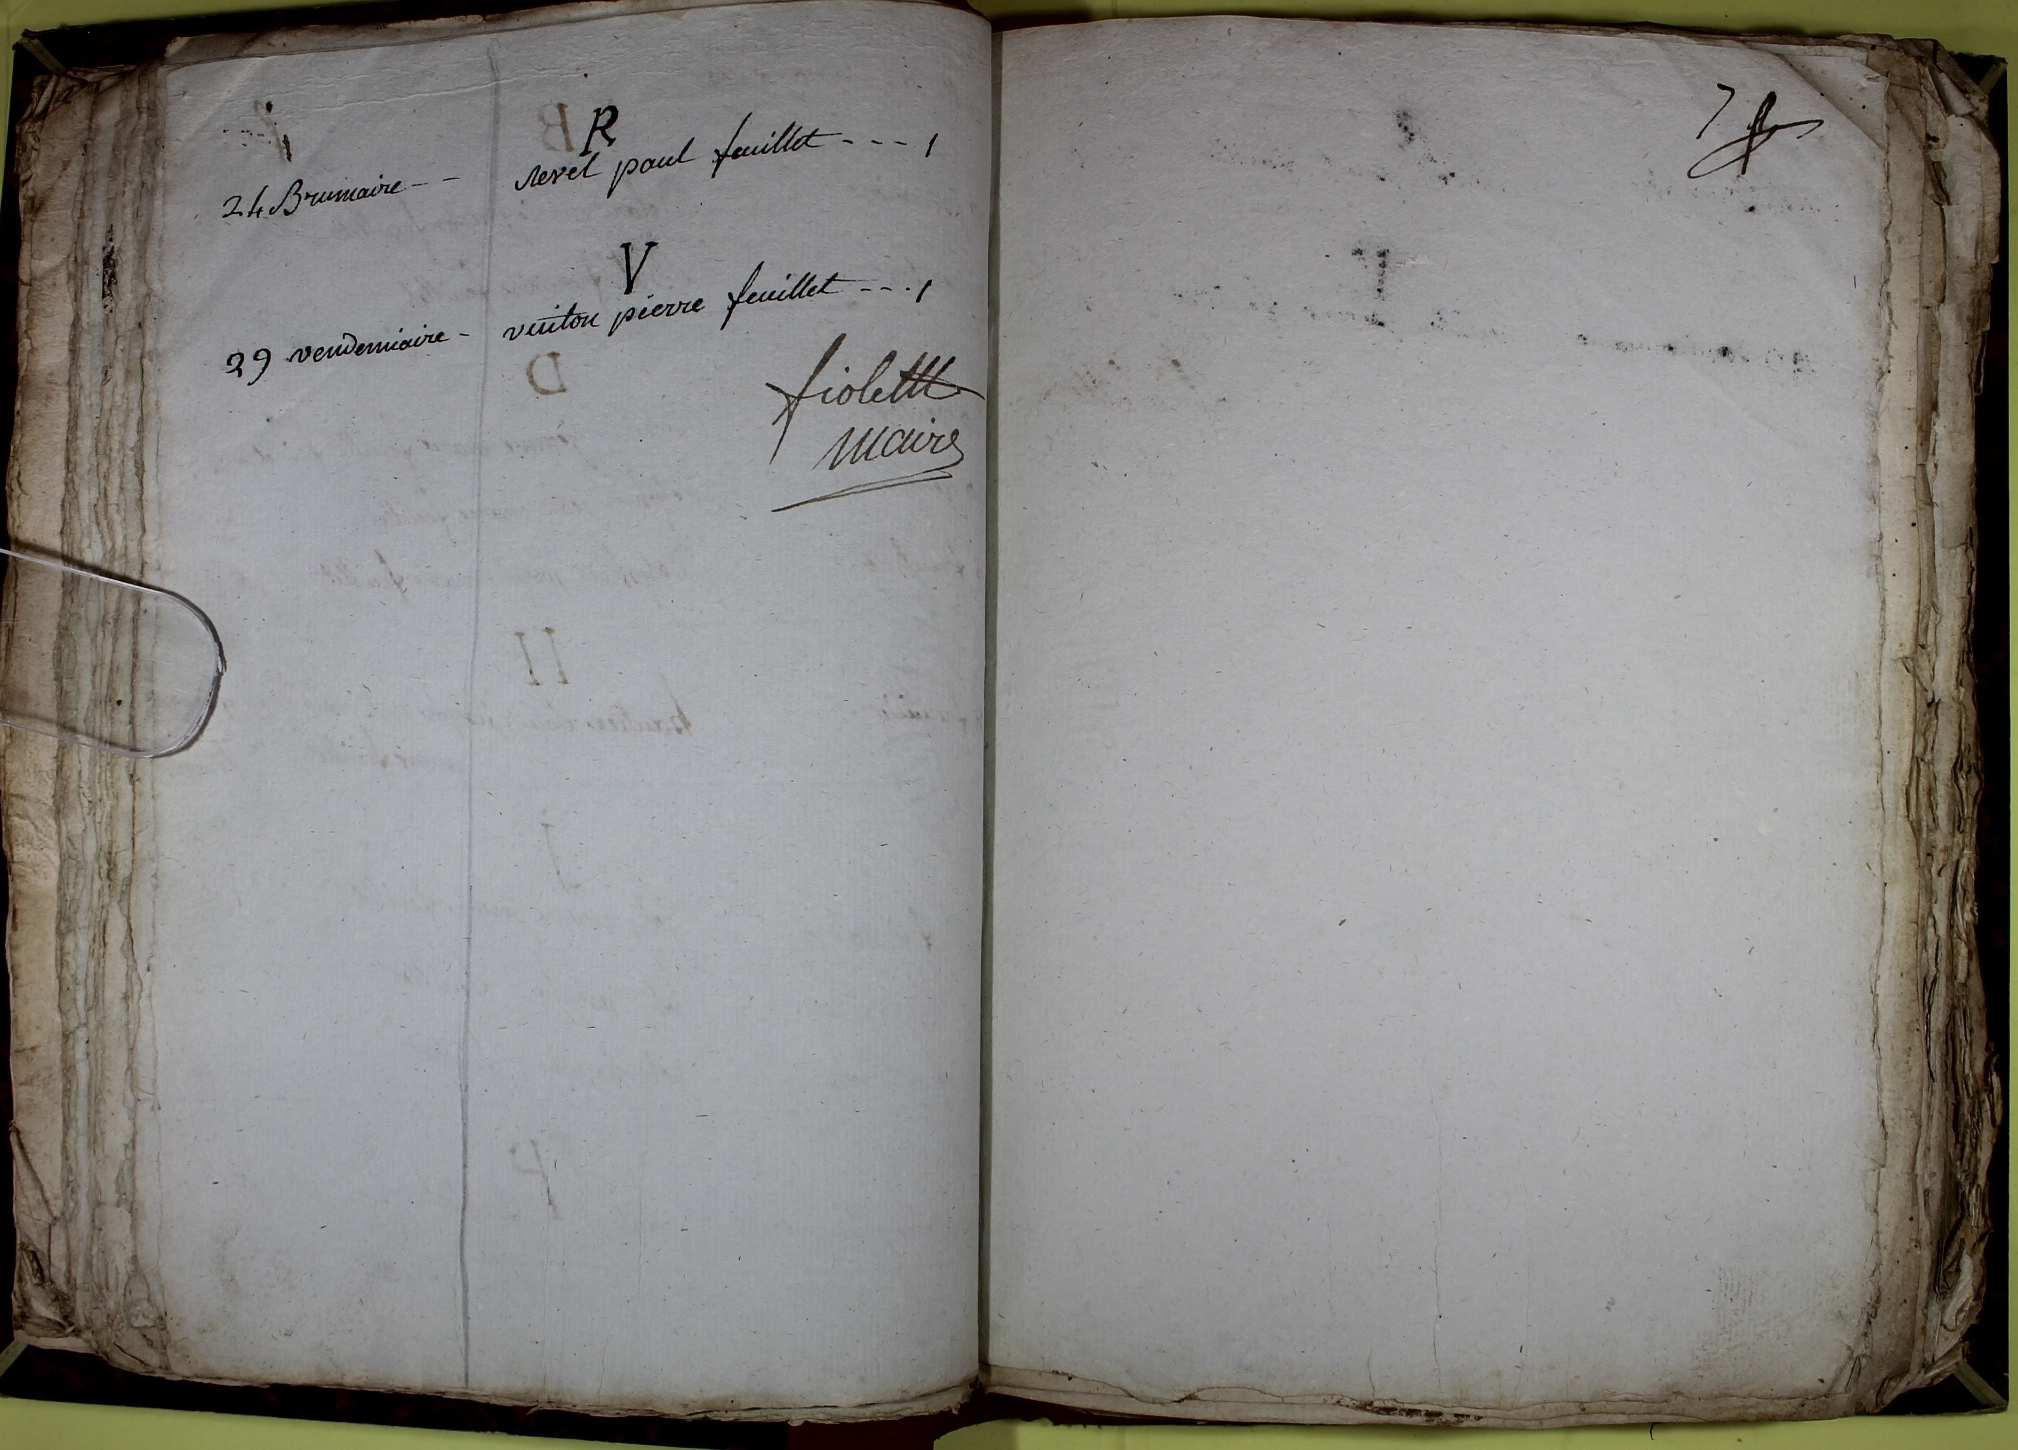 R
24 Brumaire - - revel paul feuillet - - - 1
V
29 vendemiaire - viuton pierre feuillet - - . 1
fiolette
maire
7